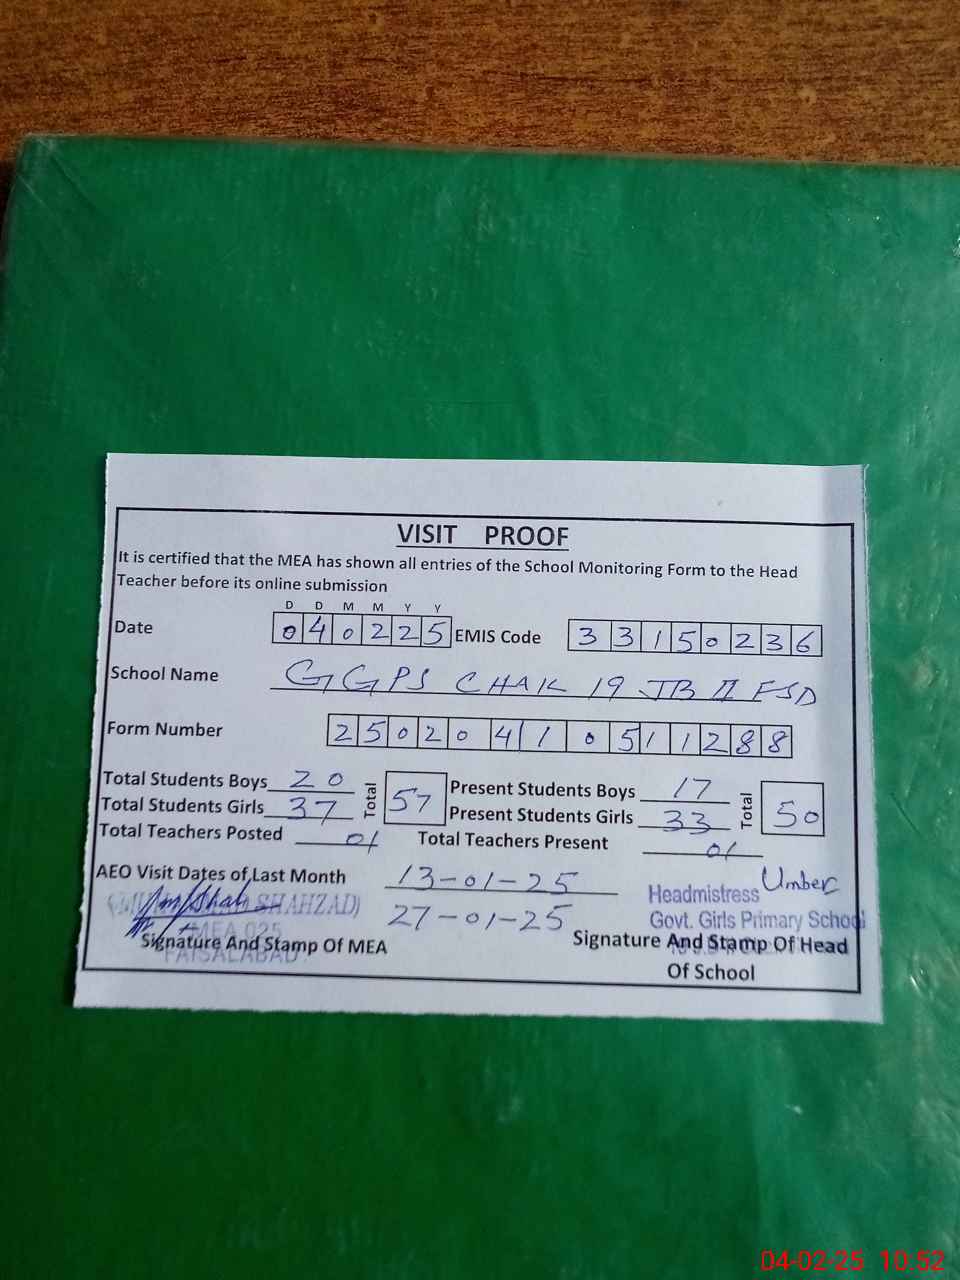 VISIT PROOF
It is certified that the MEA has shown all entries of the School Monitoring Form to the Head
Teacher before its online submission
D D M M Y Y
Date 040225 EMIS Code 33150236
School Name GGPS CHAK 19 JB II FSD
Form Number 25020 41 0511288
Total Students Boys 20 Total 57 Present Students Boys 17 Total 50
Total Students Girls 37 Present Students Girls 33
Total Teachers Posted 01 Total Teachers Present 01
AEO Visit Dates of Last Month 13-01-25
27-01-25
SHAHZAD)
MEA 025
FAISALABAD
Signature And Stamp Of MEA
Umber
Headmistress
Govt. Girls Primary School
Signature And Stamp Of Head
Of School
04-02-25 10:52